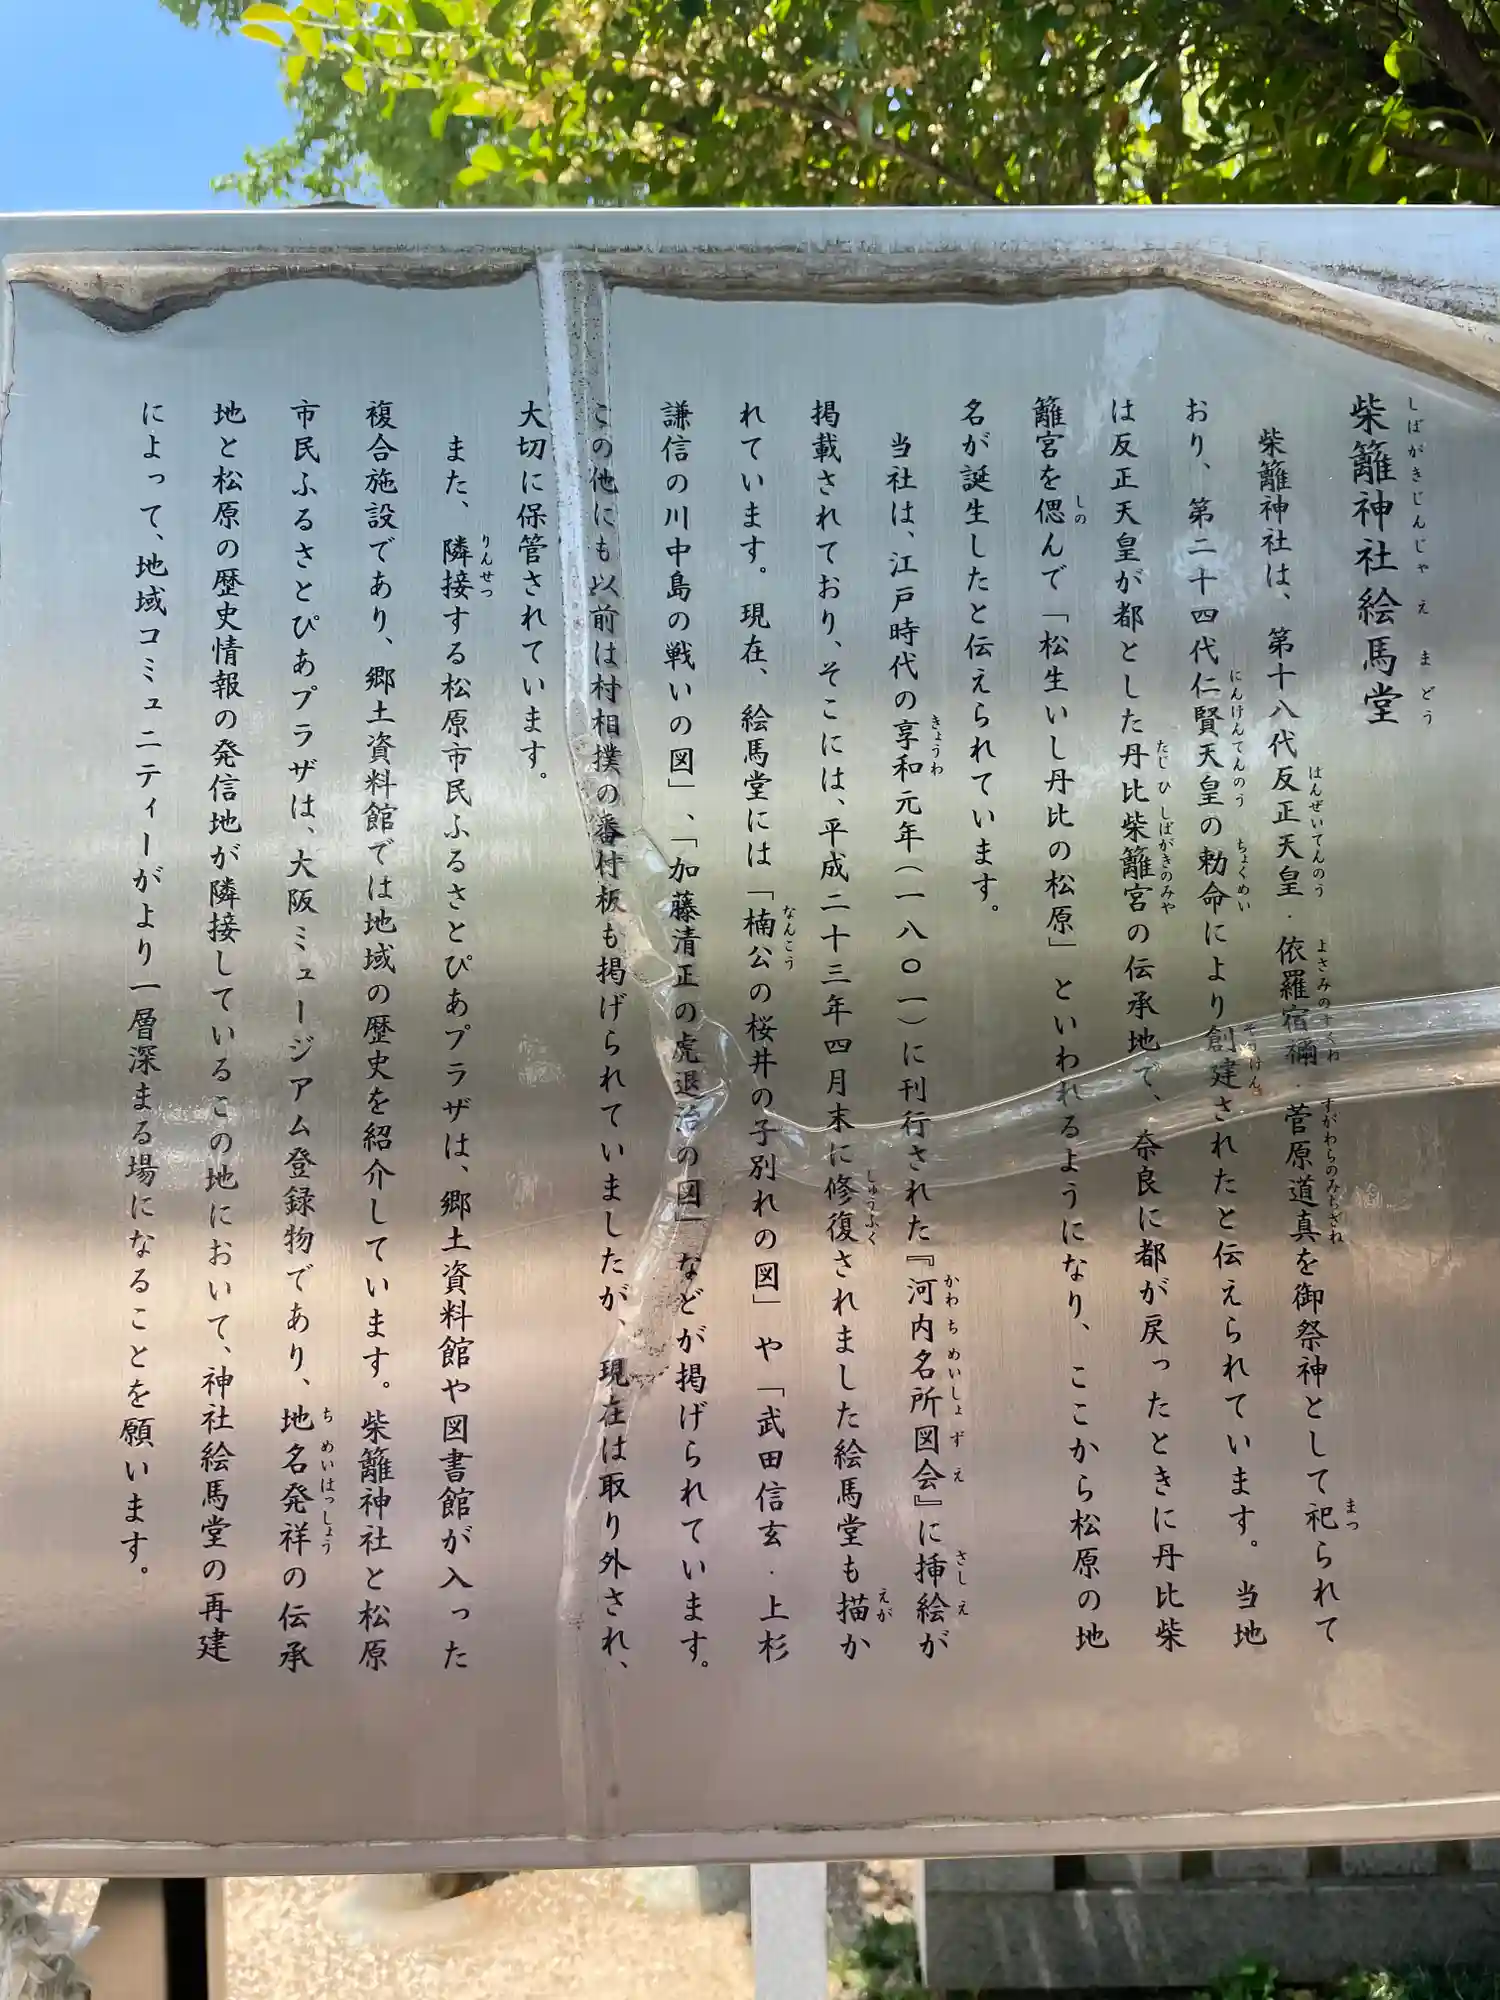 柴籬神社絵馬堂
柴籬神社は、第十八代反正天皇・依羅宿禰・菅原道真を御祭神として祀られて
おり、第二十四代仁賢天皇の勅命により創建されたと伝えられています。当地
は反正天皇が都とした丹比柴籬宮の伝承地で、奈良に都が戻ったときに丹比柴
籬宮を偲んで「松生いし丹比の松原」といわれるようになり、ここから松原の地
名が誕生したと伝えられています。
当社は、江戸時代の享和元年(一八〇一)に刊行された『河内名所図会』に挿絵が
掲載されており、そこには、平成二十三年四月末に修復されました絵馬堂も描か
れています。現在、絵馬堂には「楠公の桜井の子別れの図」や「武田信玄・上杉
謙信の川中島の戦いの図」、「加藤清正の虎退治の図」などが掲げられています。
この他にも以前は村相撲の番付板も掲げられていましたが、現在は取り外され、
大切に保管されています。
また、隣接する松原市民ふるさとぴあプラザは、郷土資料館や図書館が入った
複合施設であり、郷土資料館では地域の歴史を紹介しています。柴籬神社と松原
市民ふるさとぴあプラザは、大阪ミュージアム登録物であり、地名発祥の伝承
地と松原の歴史情報の発信地が隣接しているこの地において、神社絵馬堂の再建
によって、地域コミュニティーがより一層深まる場になることを願います。